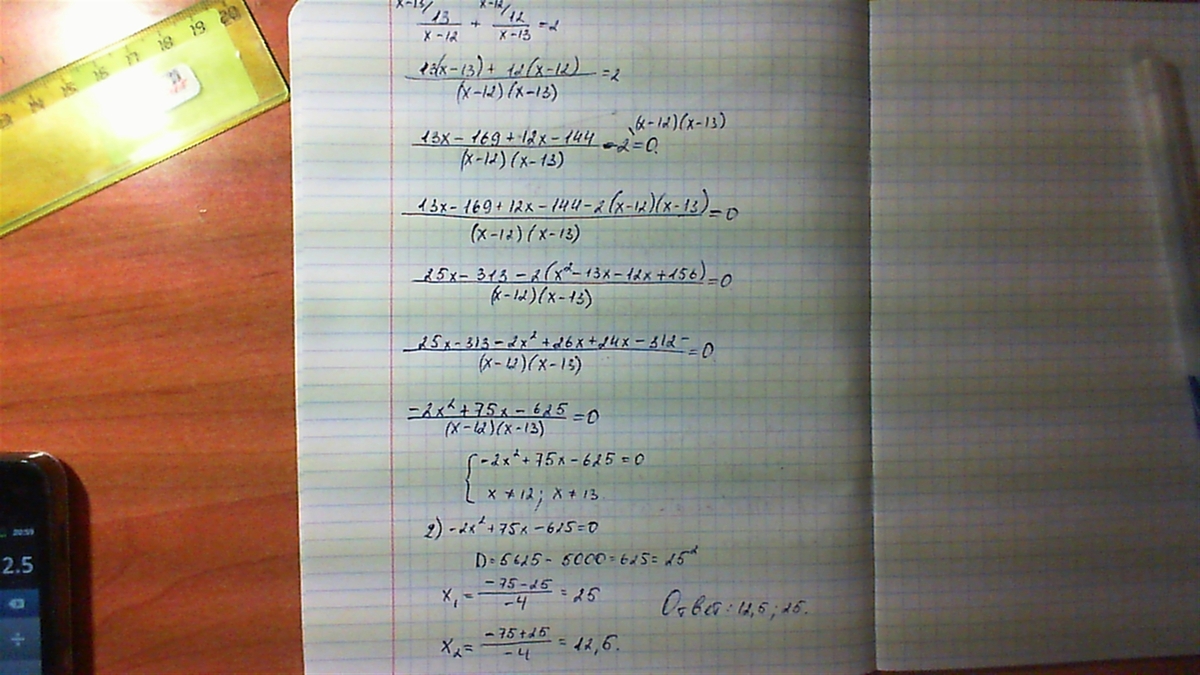 x-13/ x-12/
13/(x-12) + 12/(x-13) = 2
(13(x-13) + 12(x-12))/((x-12)(x-13)) = 2
(13x - 169 + 12x - 144)/((x-12)(x-13)) - 2 \(x-12)(x-13) = 0.
(13x - 169 + 12x - 144 - 2(x-12)(x-13))/((x-12)(x-13)) = 0
(25x - 313 - 2(x² - 13x - 12x + 156))/((x-12)(x-13)) = 0
(25x - 313 - 2x² + 26x + 24x - 312-)/((x-12)(x-13)) = 0
(-2x² + 75x - 625)/((x-12)(x-13)) = 0
{ -2x² + 75x - 625 = 0
x ≠ 12; x ≠ 13.
2) -2x² + 75x - 625 = 0
D = 5625 - 5000 = 625 = 25²
x₁ = (-75-25)/(-4) = 25
Ответ: 12,5; 25.
x₂ = (-75+25)/(-4) = 12,5.
14 15 16 17 18 19 20
20:59
2.5
÷